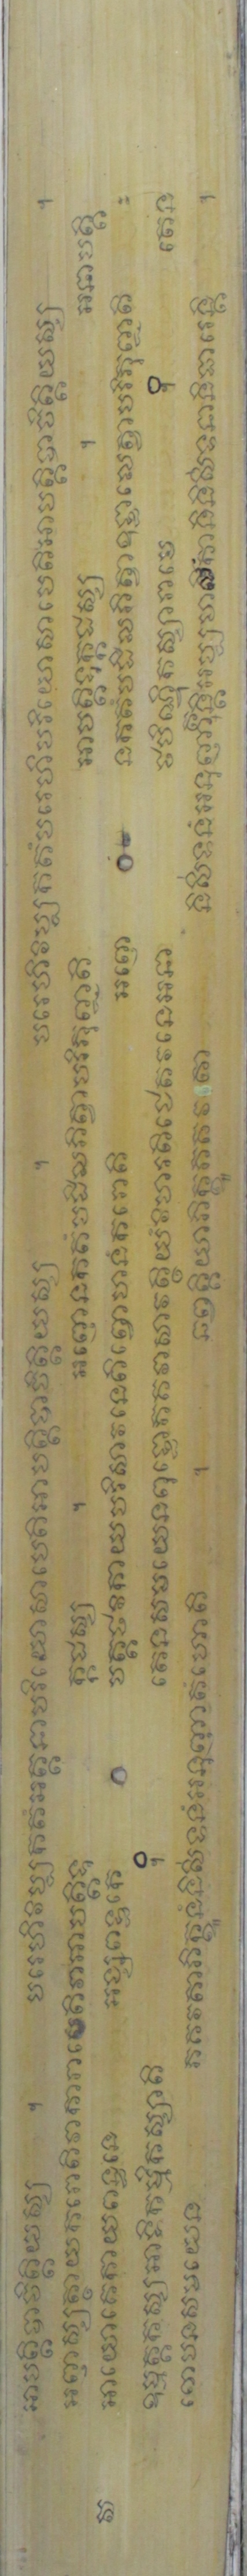 អាបត្តិបាចិត្តិយស្ស ។ បរេហិវិប្បកតំអត្តនាបរិយោសាបេតិអាបត្តិបាចិត្តិយស្ស ។ បរេហិវិប្បកតំបរេហិបរិយោសាបេតិអាបត្តិបាចិត្តិយស្ស ។
អញ្ញស្សត្ថាយករោតិវាការាបេតិវាអាបត្តិទុ ក្កដស្ស ។ អញ្ញេនកតំបដិលភិត្វាបរិភុញ្ជតិ អាបត្តិទុក្កដស្ស ។ អនាបត្តិ
វា អាយោគេកាយពន្ធនេ អំសពន្ធកេ បត្តថវិកាយបរិសាវនេតិព្វោហនំករោតិ អញ្ញេ នកតំបដិលភិត្វាឧទ្ទាលេត្វាបរិភុញ្ជតិ
ឧម្មត្តកស្សអាទិកម្មិកស្សាតិ ។ តេនសមយេនពុទ្ធោភគវាសាវត្ថិយំវិហរតិជេតវនេអនា ថបិណ្ឌិកស្សារាមេ ។ តេន
ខោបនសមយេន ភគវតាភិក្ខូនំនិសីទនំអនុញ្ញាតំហោតិ ។ ឆព្វគ្គិយាភិក្ខូភគវតា និសីទនំអនុញ្ញាតន្តិអប្បមាណិកានិនិសីទនានិធារេន្តិ ។